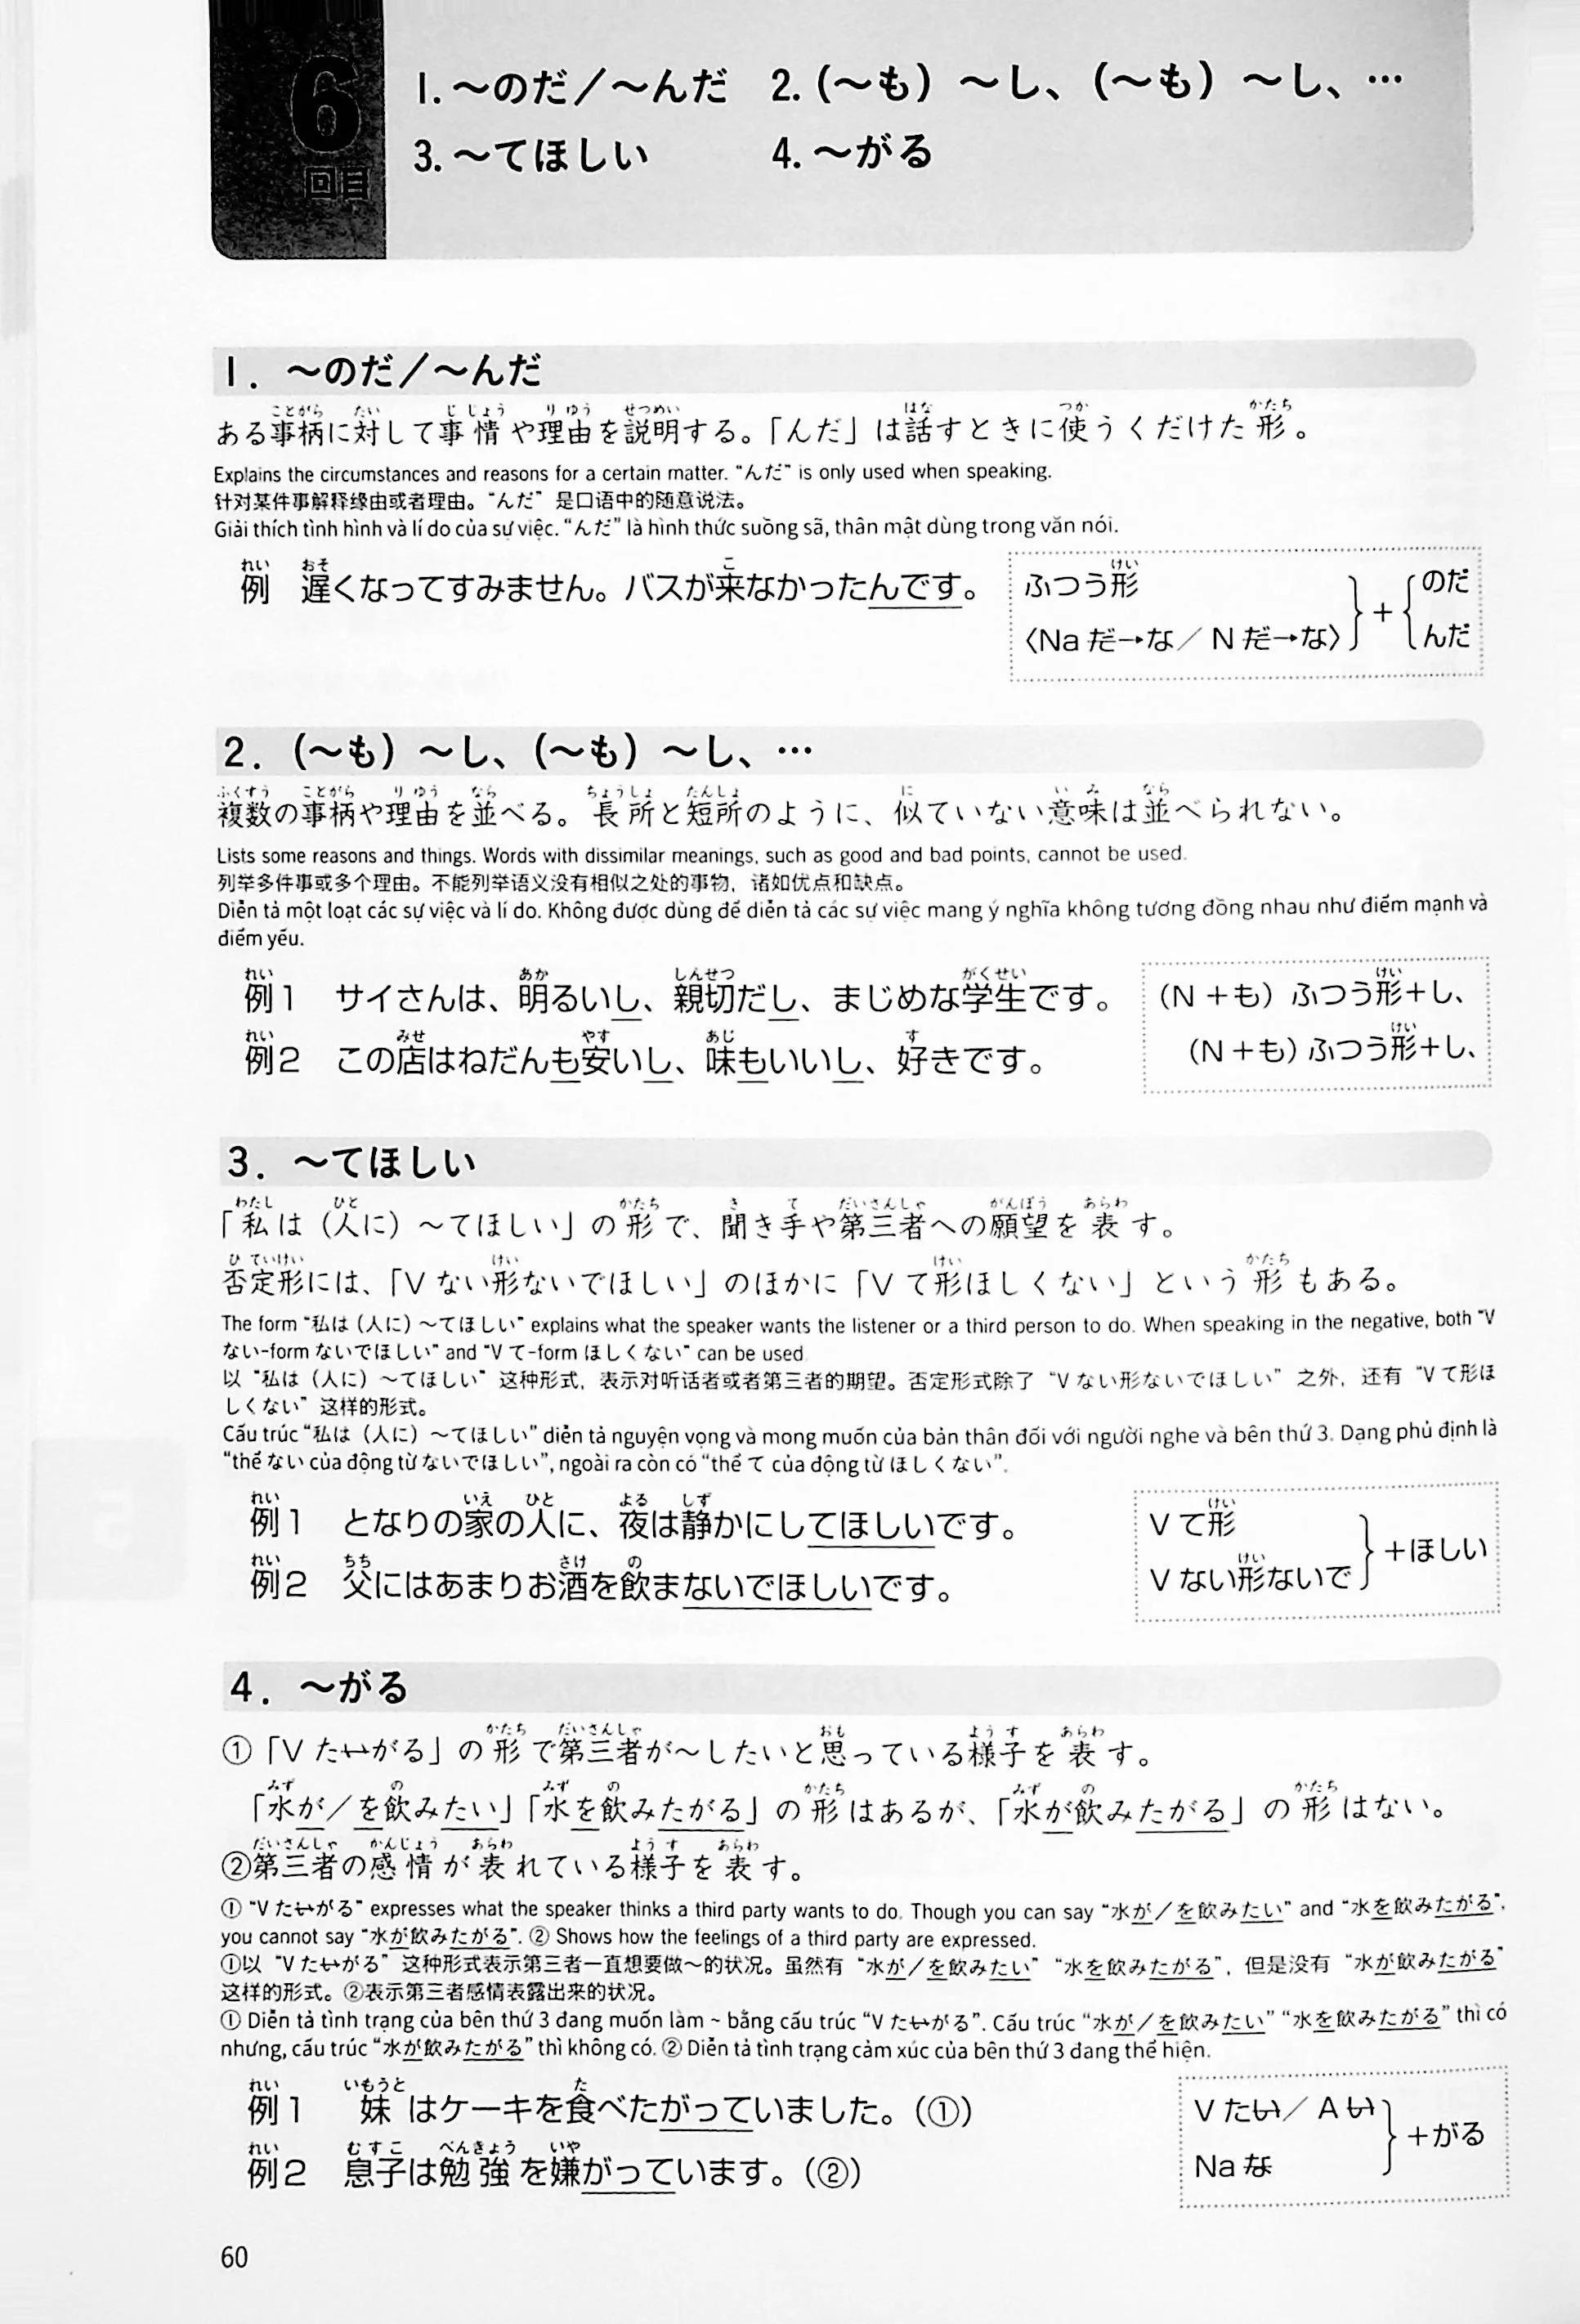 6
回目
1. ～のだ／～んだ 2.（～も）～し、（～も）～し、…
3. ～てほしい 4. ～がる
1. ～のだ／～んだ
ある事柄に対して事情や理由を説明する。「んだ」は話すときに使うくだけた形。
Explains the circumstances and reasons for a certain matter. “んだ” is only used when speaking.
针对某件事解释缘由或者理由。“んだ”是口语中的随意说法。
Giải thích tình hình và lí do của sự việc. “んだ” là hình thức suồng sã, thân mật dùng trong văn nói.
例 遅くなってすみません。バスが来なかったんです。
ふつう形
〈Na だ→な／ N だ→な〉
+
のだ
んだ
2.（～も）～し、（～も）～し、…
複数の事柄や理由を並べる。長所と短所のように、似ていない意味は並べられない。
Lists some reasons and things. Words with dissimilar meanings, such as good and bad points, cannot be used.
列举多件事或多个理由。不能列举语义没有相似之处的事物，诸如优点和缺点。
Diễn tả một loạt các sự việc và lí do. Không được dùng để diễn tả các sự việc mang ý nghĩa không tương đồng nhau như điểm mạnh và
điểm yếu.
例1 サイさんは、明るいし、親切だし、まじめな学生です。
例2 この店はねだんも安いし、味もいいし、好きです。
（N＋も）ふつう形＋し、
（N＋も）ふつう形＋し、
3. ～てほしい
「私は（人に）～てほしい」の形で、聞き手や第三者への願望を表す。
否定形には、「Vない形ないでほしい」のほかに「Vて形ほしくない」という形もある。
The form “私は（人に）～てほしい” explains what the speaker wants the listener or a third person to do. When speaking in the negative, both “V
ない-form ないでほしい” and “V て-form ほしくない” can be used.
以“私は（人に）～てほしい”这种形式，表示对听话者或者第三者的期望。否定形式除了“Vない形ないでほしい”之外，还有“Vて形ほ
しくない”这样的形式。
Cấu trúc “私は（人に）～てほしい” diễn tả nguyện vọng và mong muốn của bản thân đối với người nghe và bên thứ 3. Dạng phủ định là
“thể ない của động từ ないでほしい”, ngoài ra còn có “thể て của động từ ほしくない”.
例1 となりの家の人に、夜は静かにしてほしいです。
例2 父にはあまりお酒を飲まないでほしいです。
Vて形
Vない形ないで
＋ほしい
4. ～がる
①「Vたいがる」の形で第三者が～したいと思っている様子を表す。
「水が／を飲みたい」「水を飲みたがる」の形はあるが、「水が飲みたがる」の形はない。
②第三者の感情が表れている様子を表す。
① “Vたいがる” expresses what the speaker thinks a third party wants to do. Though you can say “水が／を飲みたい” and “水を飲みたがる”,
you cannot say “水が飲みたがる”. ② Shows how the feelings of a third party are expressed.
①以“Vたいがる”这种形式表示第三者一直想要做～的状况。虽然有“水が／を飲みたい”“水を飲みたがる”，但是没有“水が飲みたがる”
这样的形式。②表示第三者感情表露出来的状况。
① Diễn tả tình trạng của bên thứ 3 đang muốn làm ~ bằng cấu trúc “Vたいがる”. Cấu trúc “水が／を飲みたい” “水を飲みたがる” thì có
nhưng, cấu trúc “水が飲みたがる” thì không có. ② Diễn tả tình trạng cảm xúc của bên thứ 3 đang thể hiện.
例1 妹はケーキを食べたがっていました。（①）
例2 息子は勉強を嫌がっています。（②）
Vたい／Aい
Naな
＋がる
60